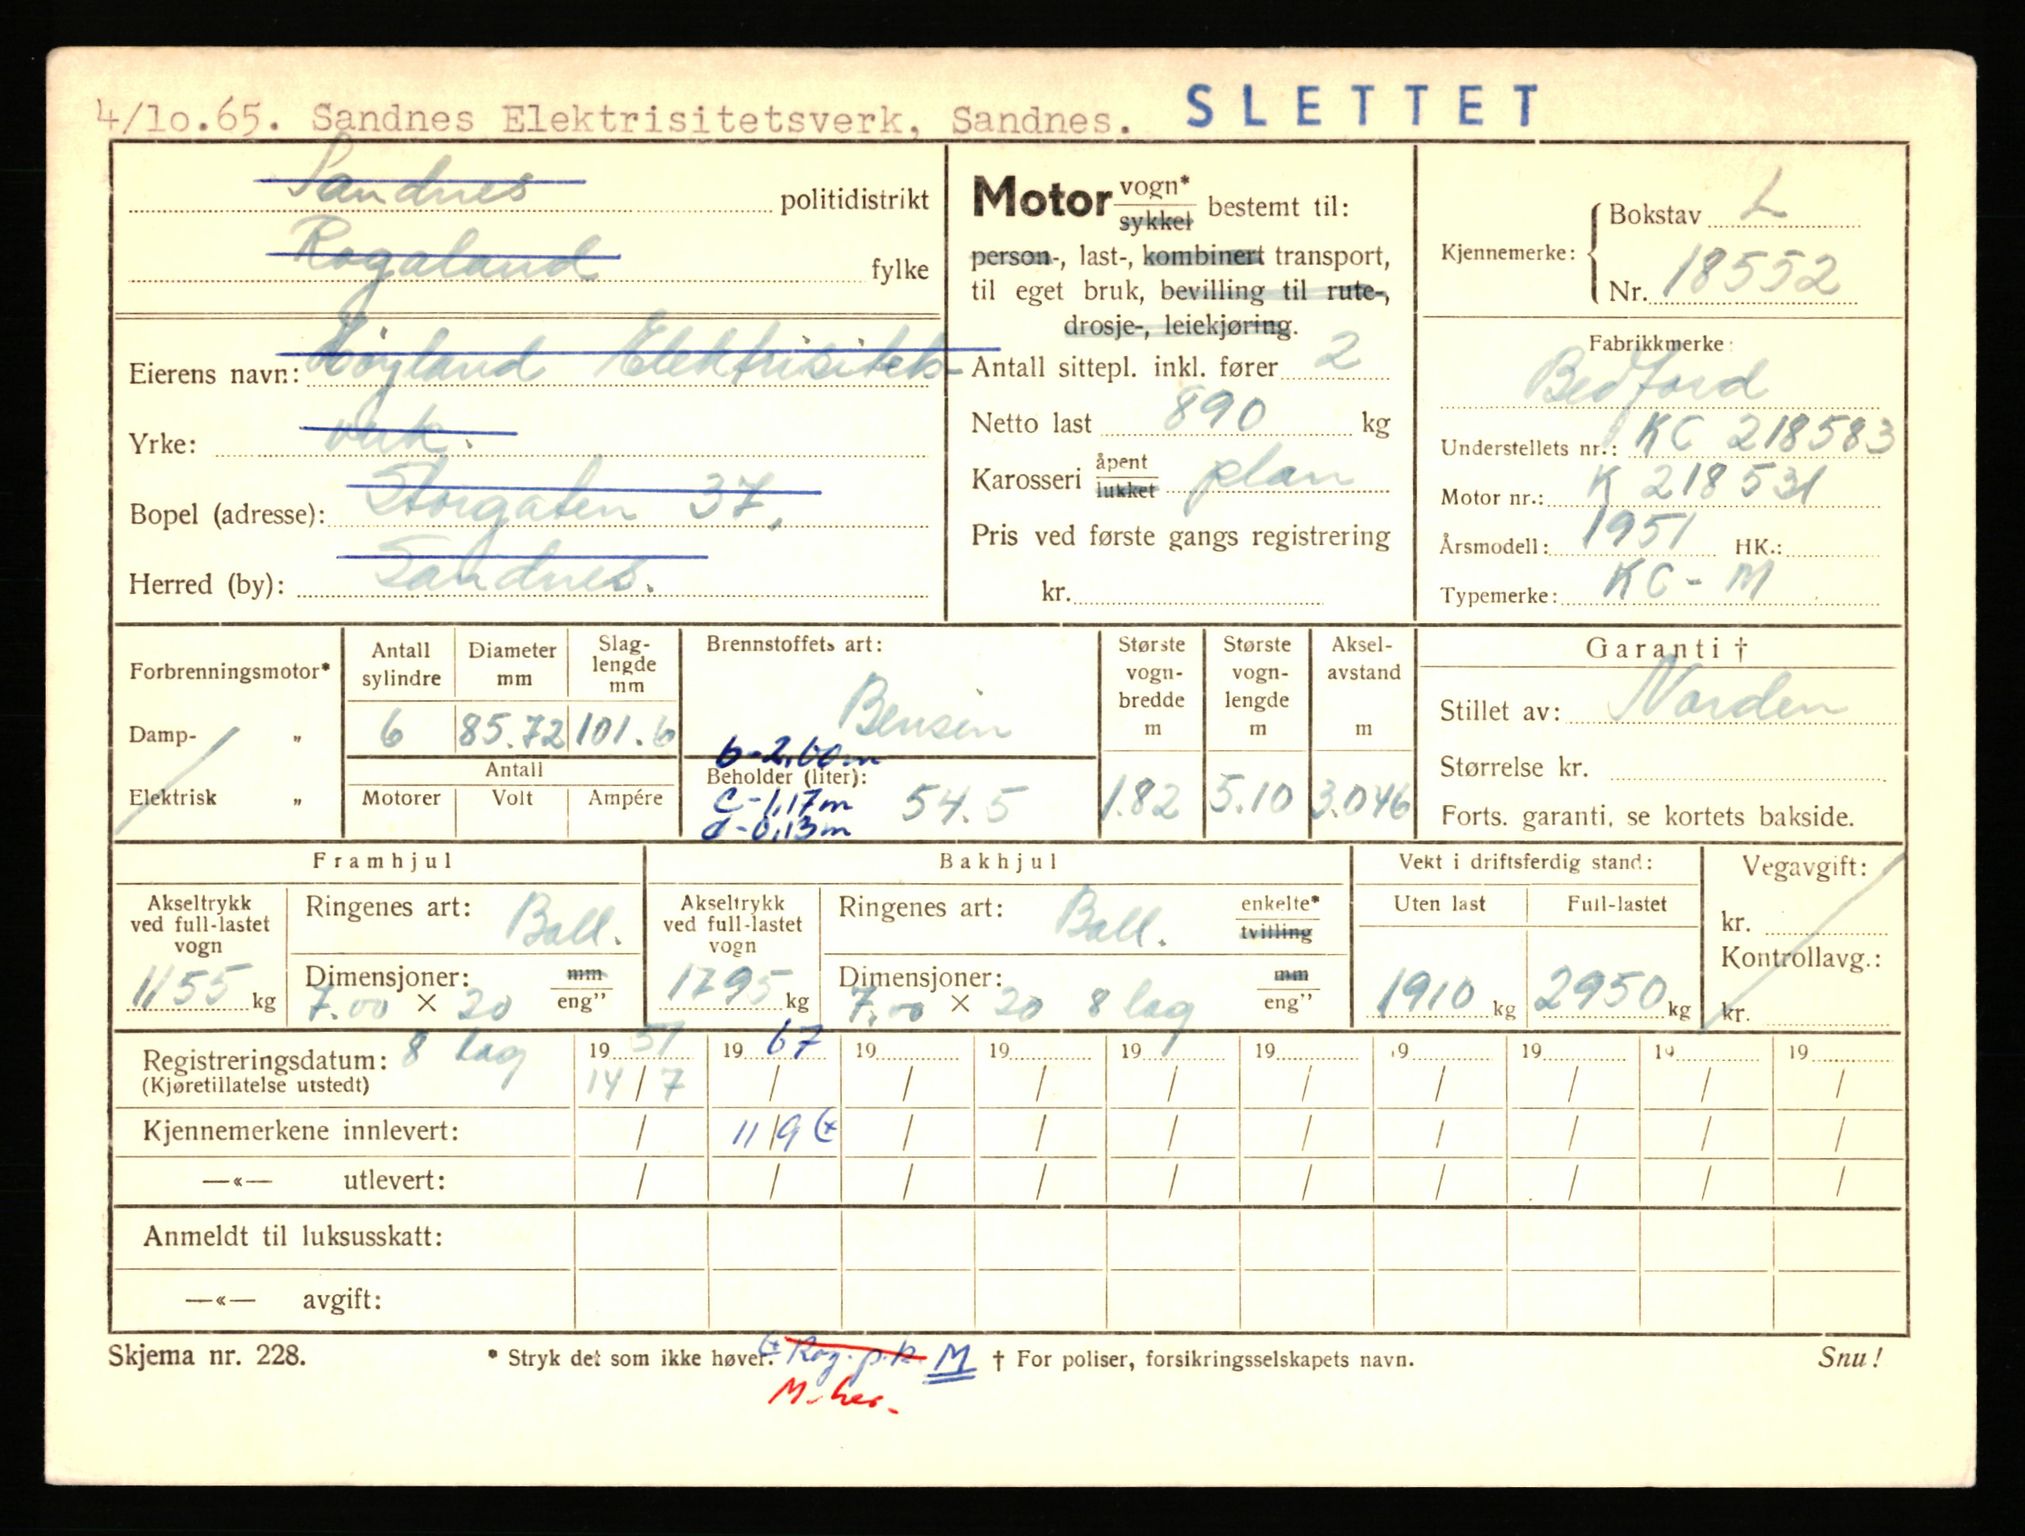 4/10.65. Sandnes Elektrisitetsverk, Sandnes. SLETTET
Sandnes politidistrikt
Rogaland fylke
Eierens navn: Høyland Elektrisitets-
Yrke: verk.
Bopel (adresse): Storgaten 37.
Herred (by): Sandnes.
Motor vogn* sykkel bestemt til:
person-, last-, kombinert transport,
til eget bruk, bevilling til rute-,
drosje-, leiekjøring.
Antall sittepl. inkl. fører 2
Netto last 890 kg
Karosseri åpent lukket plan
Pris ved første gangs registrering
kr.
Kjennemerke: Bokstav L
Nr. 18552
Fabrikkmerke:
Bedford
Understellets nr.: KC 218583
Motor nr.: K 218531
Årsmodell: 1951 HK.:
Typemerke: KC - M
Forbrenningsmotor*
Damp- „
Elektrisk „
Antall sylindre
6
Diameter mm
85.72
Slag-lengde mm
101.6
Antall
Motorer Volt Ampére
Brennstoffets art:
Bensin
b-2,60m
Beholder (liter): 54.5
c-1,17m
d-0,13m
Største vogn-bredde m
1.82
Største vogn-lengde m
5.10
Aksel-avstand m
3.046
Garanti †
Stillet av: Norden
Størrelse kr.
Forts. garanti, se kortets bakside.
Framhjul
Akseltrykk ved full-lastet vogn
1155 kg
Ringenes art: Ball.
Dimensjoner: mm
7.00 × 20 eng"
8 lag
Bakhjul
Akseltrykk ved full-lastet vogn
1795 kg
Ringenes art: Ball. enkelte* tvilling
Dimensjoner: mm
7.00 × 20 8 lag eng"
Vekt i driftsferdig stand:
Uten last Full-lastet
1910 kg 2950 kg
Vegavgift:
kr.
Kontrollavg.:
kr.
Registreringsdatum: 19 51 19 67 19 19 19 19 19 19 19 19
(Kjøretillatelse utstedt) 14/7 / / / / / / / / /
Kjennemerkene innlevert: / 11/9 (* / / / / / / / /
—«— utlevert: / / / / / / / / / /
Anmeldt til luksusskatt:
—«— avgift:
Skjema nr. 228. * Stryk det som ikke høver. (* Rog. p.k. M † For poliser, forsikringsselskapets navn. Snu!
M. her.